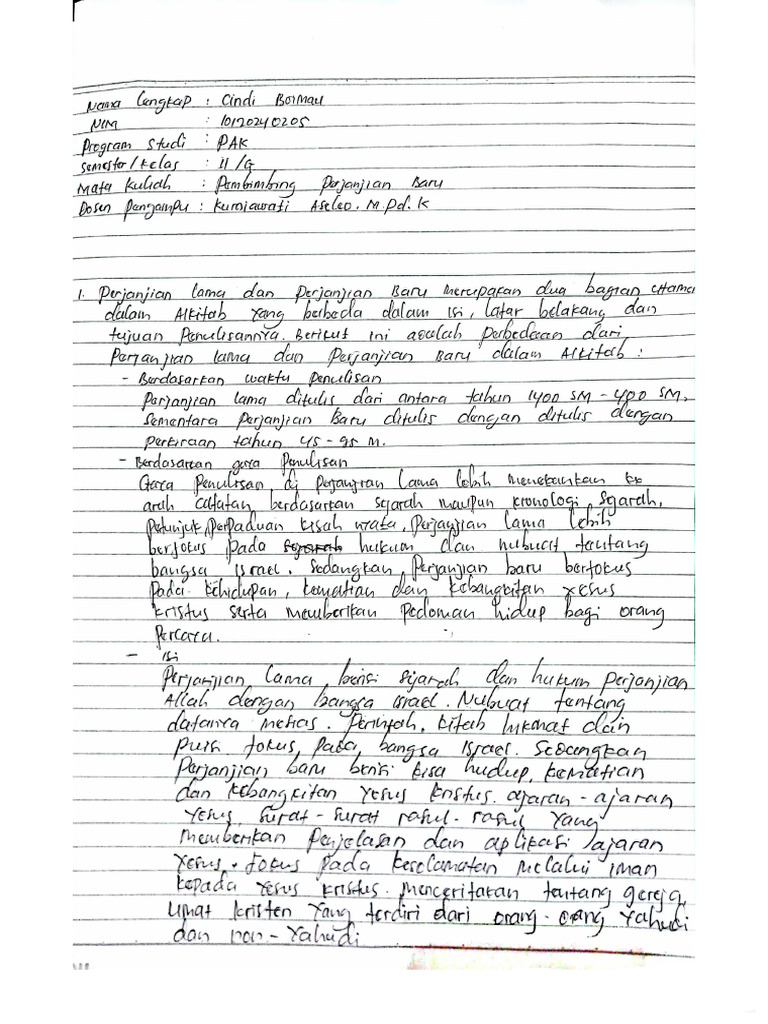 Nama Lengkap : Cindi Bormau
NIM : 10120240205
Program Studi : PAK
Semester/Kelas : II/G
Mata Kuliah : Pembimbing Perjanjian Baru
Dosen Pengampu : Kurniawati Aseleo. M.Pd.K
1. Perjanjian lama dan Perjanjian Baru merupakan dua bagian utama
dalam Alkitab yang berbeda dalam isi, latar belakang dan
tujuan Penulisannya. Berikut ini adalah perbedaan dari
Perjanjian lama dan Perjanjian Baru dalam Alkitab :
- Berdasarkan waktu Penulisan
Perjanjian lama ditulis dari antara tahun 1400 SM - 400 SM,
Sementara Perjanjian Baru ditulis dengan ditulis dengan
perkiraan tahun 45 - 95 M.
- Berdasarkan gaya Penulisan
Gaya Penulisan di perjanjian lama lebih menekankan ke
arah catatan berdasarkan sejarah maupun kronologi sejarah,
Petunjuk, perpaduan kisah nyata, Perjanjian lama lebih
berfokus pada sejarah hukum dan nubuat tentang
bangsa israel. Sedangkan, Perjanjian baru berfokus
pada kehidupan, kematian dan kebangkitan yesus
kristus serta memberikan pedoman hidup bagi orang
percaya.
- isi
Perjanjian lama, berisi sejarah dan hukum perjanjian
Allah dengan bangsa israel. Nubuat tentang
datanya mesias. Perintah, kitab hikmat dan
puisi fokus, pada, bangsa israel. Sedangkan
Perjanjian baru berisi kisa hudup, kematian
dan kebangkitan Yesus kristus. ajaran-ajaran
Yesus, surat-surat rasul-rasul yang
memberikan penjelasan dan aplikasi ajaran
yesus. fokus pada keselamatan melalui iman
kepada yesus kristus. menceritakan tentang gereja,
umat kristen yang terdiri dari orang-orang yahudi
dan non-Yahudi